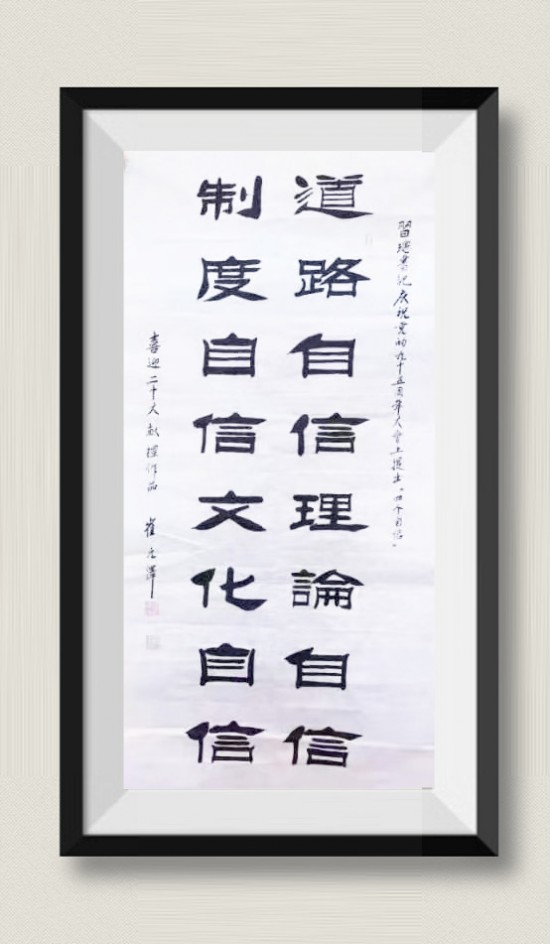 道路自信理論自信
制度自信文化自信
習總書記慶祝黨的九十五周年大會上提出"四个自信"
喜迎二十大献禮作品 崔